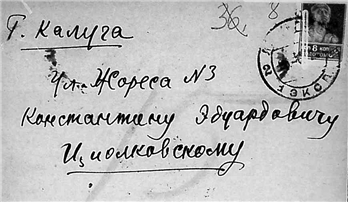 36, 8
Г. Калуга
Ул. Жореса №3
Константину Эдуардовичу
Циолковскому
8 КОП